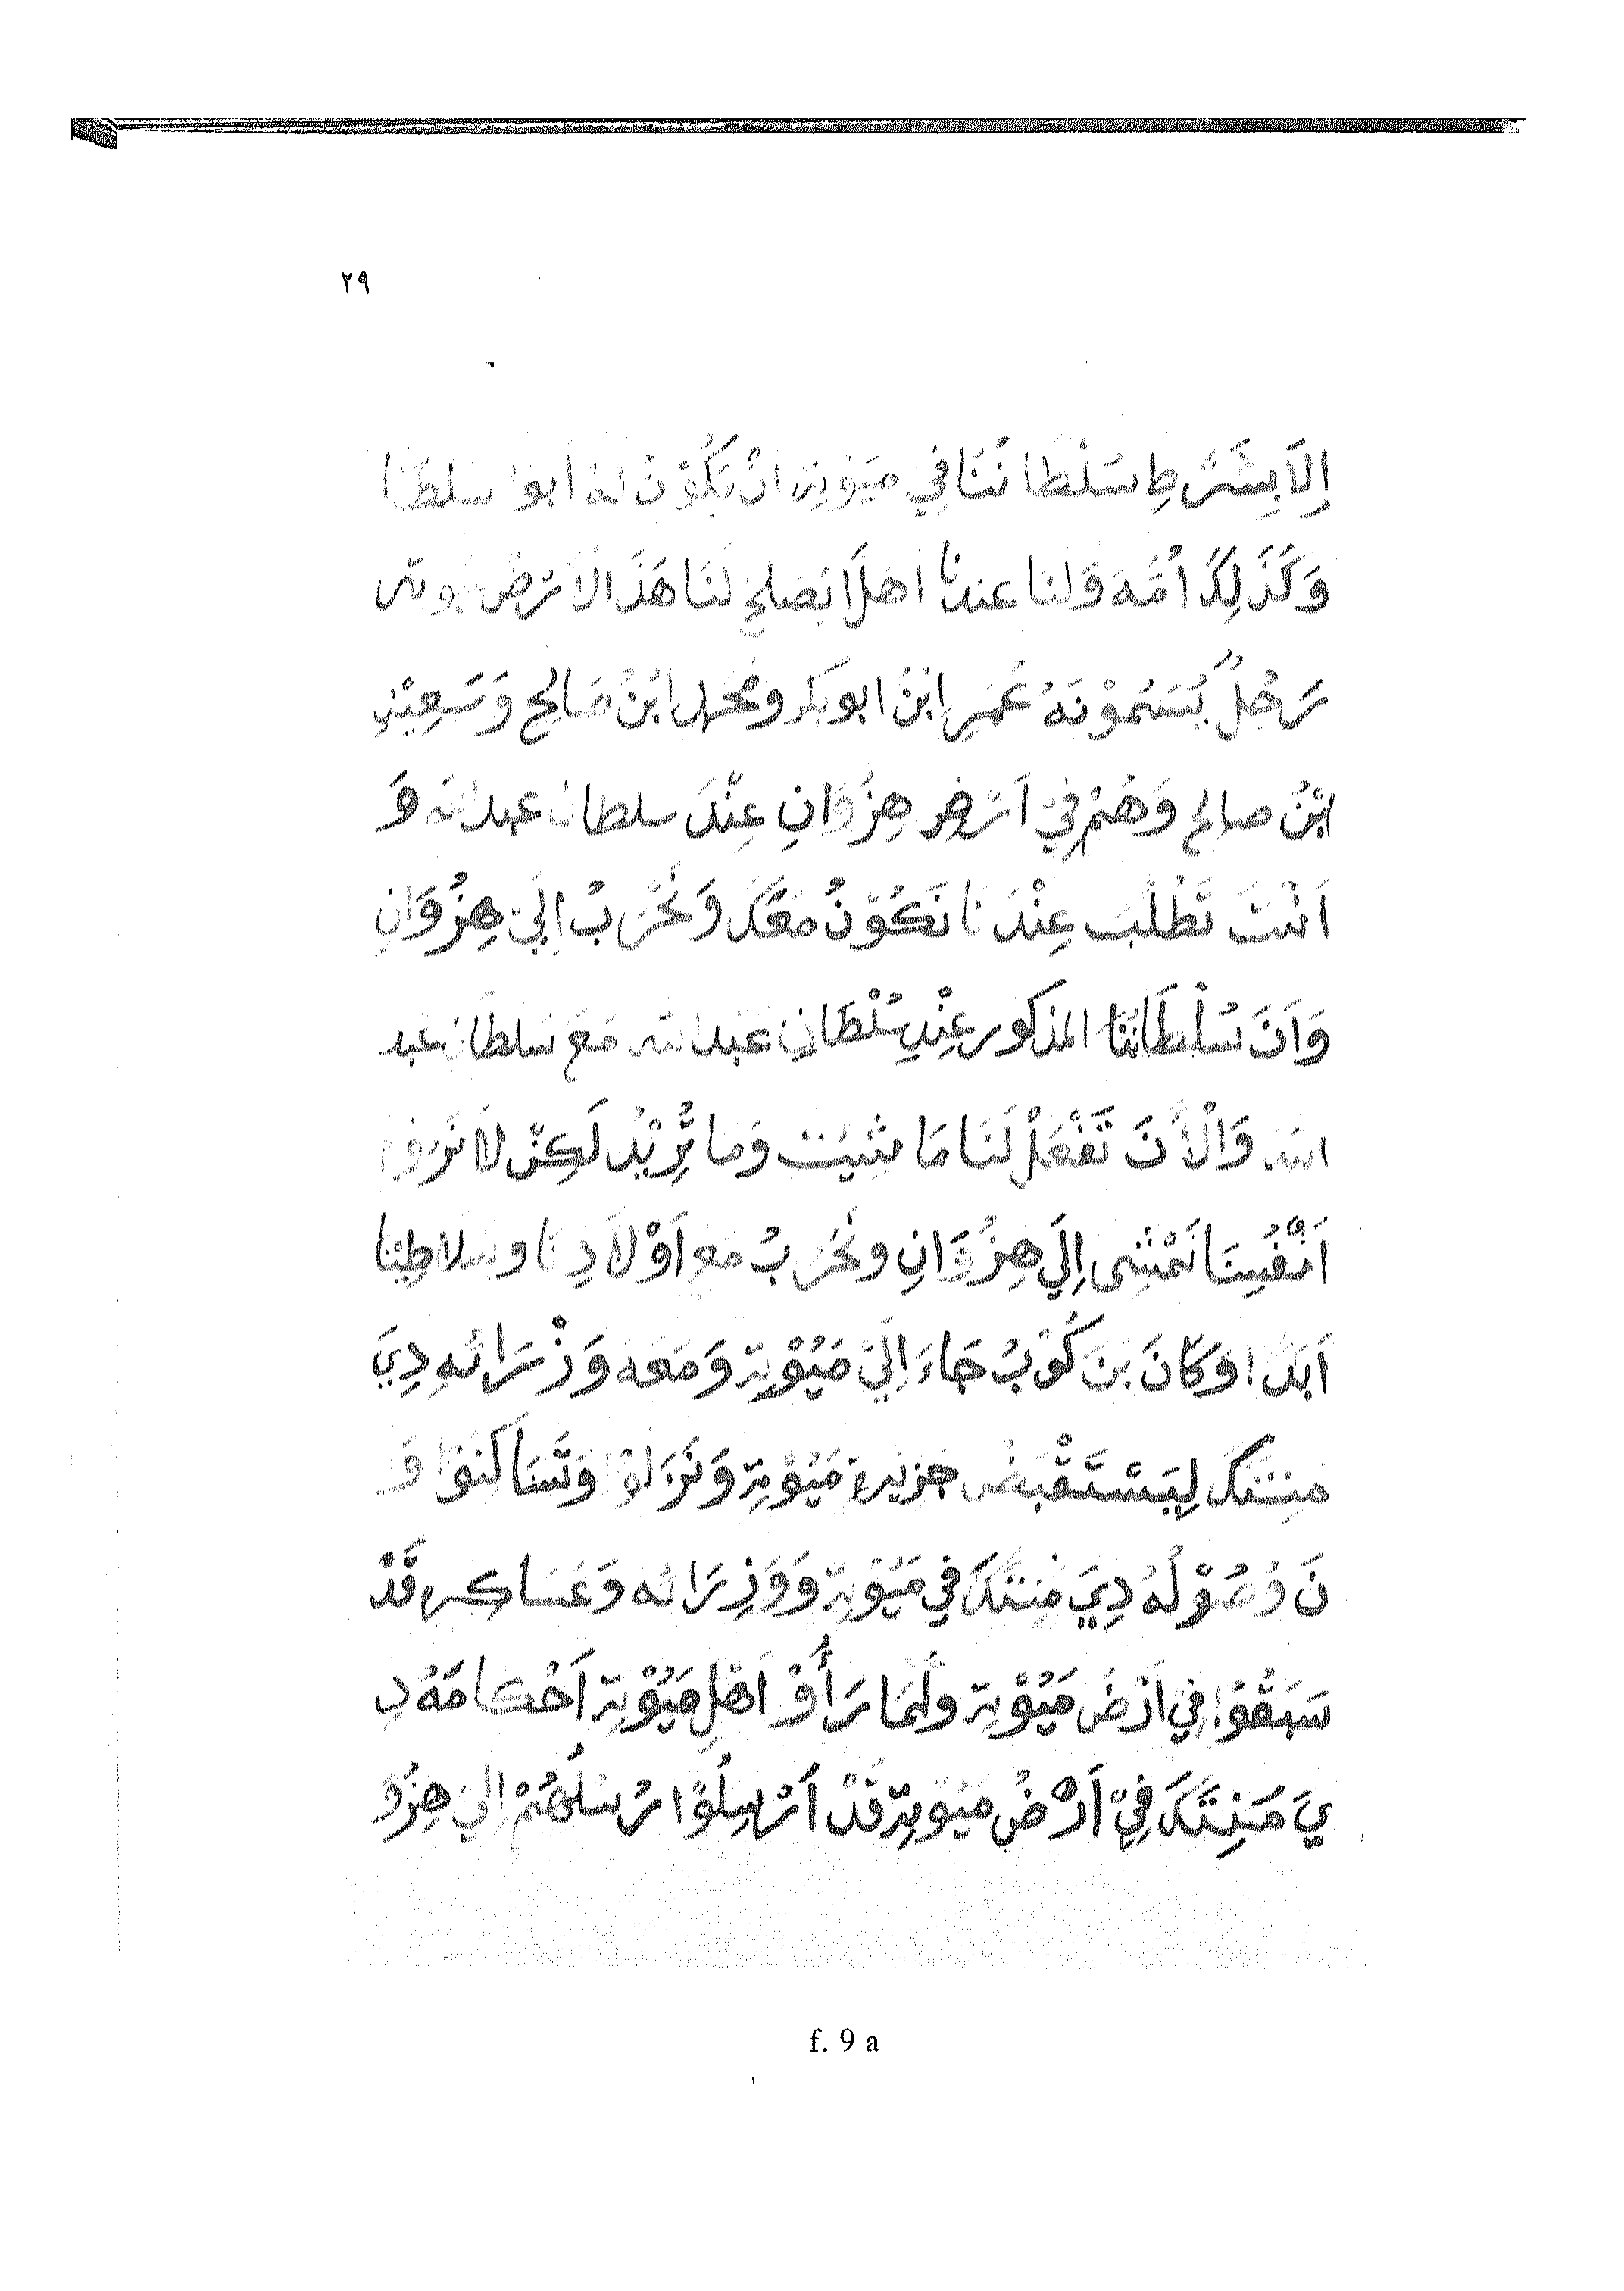 ٢٩
إِلَا بِشَرْطِ سُلْطَانُنَا فِي مَيُوتِة اَنْ يَكُوْنُ لَهُ ابوا سلطَاا
وَكَذَلِكَ اُمُّهَ وَلنا عندنا اهلًا يَصلح لَنَا هَذَ الاَرْضُ
رَجُلٌ يُسَمُوْنَهُ عُمَرِ ابْنُ ابو بكر ومُحَمد ابْنُ صَالِح وَسَعِيْدِ
ابْنُ صالح وَهُمْ فِيْ اَرْضِ هِزُوَانِ عِنْدَ سلطان عبد الله وَ
اَنْتَ تَطْلُبَ عِنْدَنَا نَكُوْنُ مَعَكَ وَنَحْرَبُ اِلَيْ هِزُوَانِ
وَاَنَ سُلْطَانُنَا المذكور عِنْدِ سُلْطَانِ عَبد الله مَعَ سَلطان عبد
الله وَالْأَنَ تَفْعَلْ لَنَا مَا شِيْتَ وَمَا تُرِيْدُ لَكِنْ لاَ نَرُوْمِ
اَنْفُسِنَا نَمْشِى اِلَي هِزُوَانِ ونَحْرَبُ مَعِ اَوْلاَدِنَا وسلاطِيْنا
اَبَدًا وَكَانَ بَنَ كُوْبُ جَاءَ اِلَيْ مَيُوْتِة وَمَعَهُ وَزْرَائهِ دِيَ
مِنتَكَ لِيَسْتَقْبَضُ جزيرة مَيُوْتِة وَنَزَلُوْا وَتَسَاكَنوْا وَ
نَ وُصُوْلُهُ دِيَ مِنتَكَ فِي مَيُوْتِة وَوَزِرَائه وَعَسَاكِره قَدْ
سَبَقُوْا فِي اَرْضَ مَيُوْتِة ولَمَا رَأُوْ اَهْلِ مَيُوْتِة اَحْكَامَهُ دِ
يَ مَنِتَكَ فِيْ اَرْضُ مَيُوْتِة قَدْ اَرْسِلُوْا رُسُلُهُمْ اِلَيَ هِزُوَ
f. 9 a